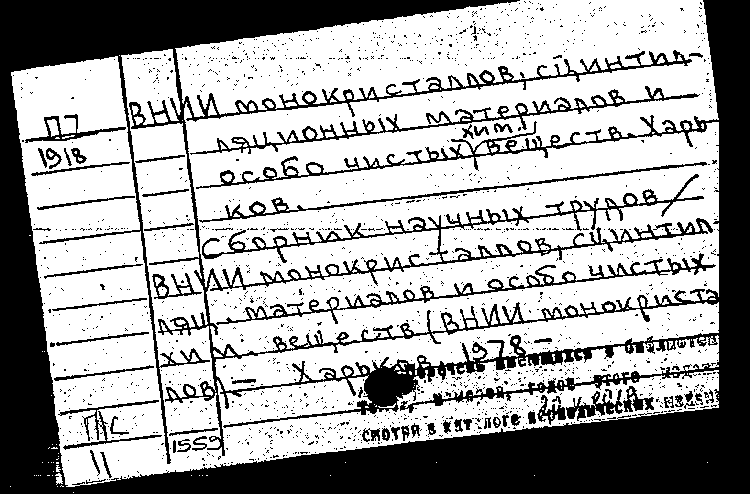 П7
1918
ВНИИ монокристаллов, сцинтил-
ляционных материалов и
особо чистых хим. веществ. Харь
ков.
Сборник научных трудов /
ВНИИ монокристаллов, сцинтил-
ляц. материалов и особо чистых
хим. веществ (ВНИИ монокриста
лов) – Харьков, 1978 –
имеющихся в библиотеке
томов, номеров, годов этого издания
смотри в каталоге периодических издани
ГПС
11
1559